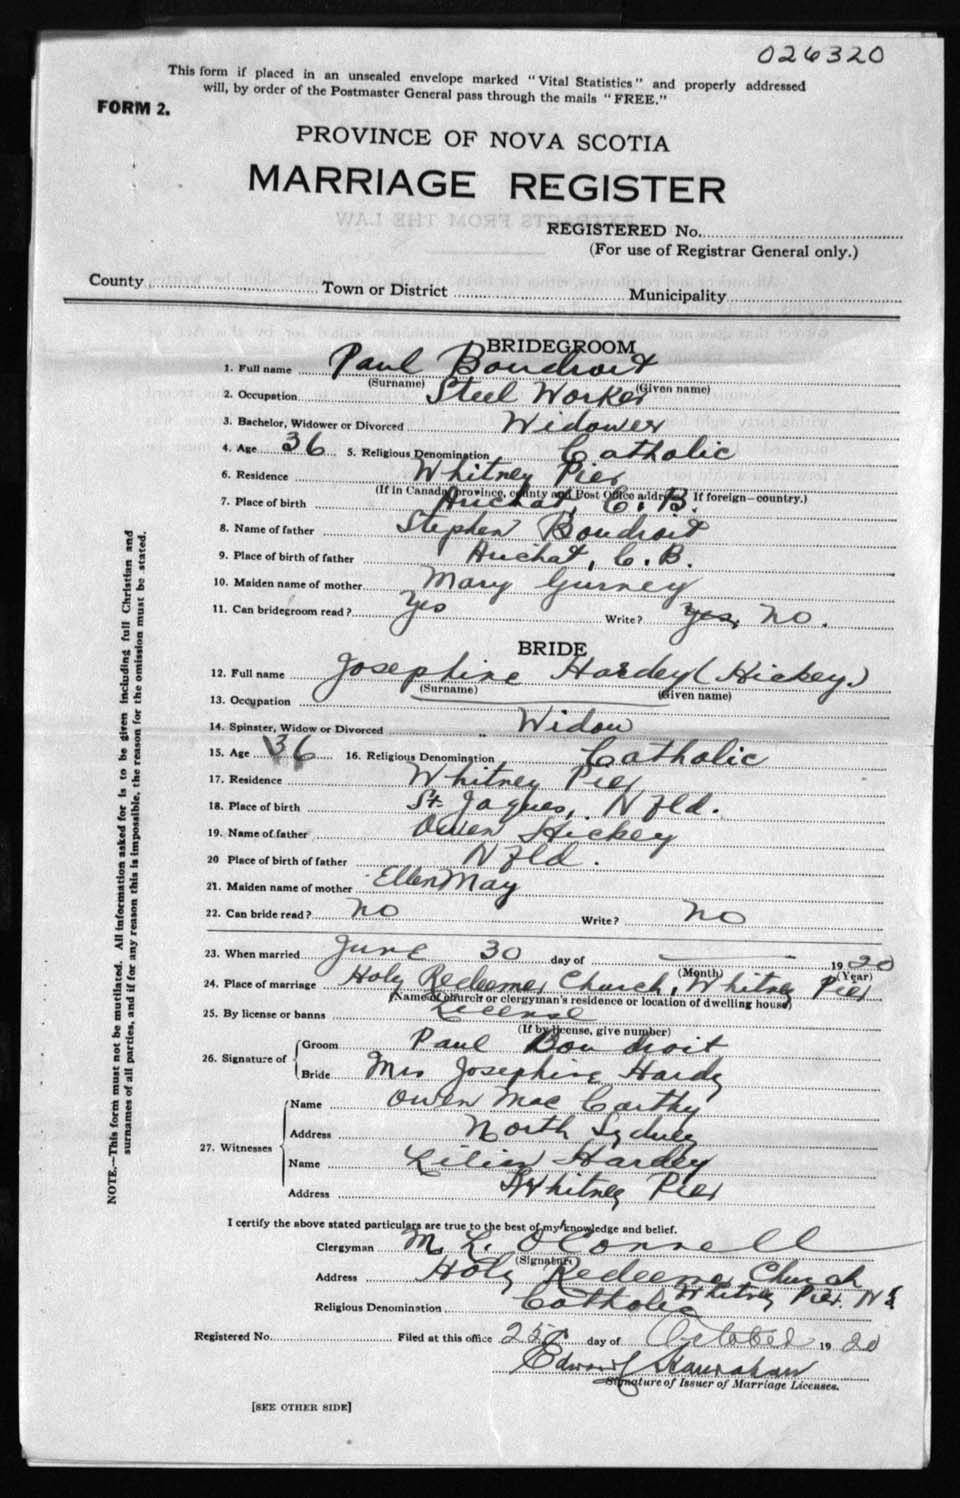 026320
This form if placed in an unsealed envelope marked "Vital Statistics" and properly addressed
will, by order of the Postmaster General pass through the mails "FREE."
FORM 2.
PROVINCE OF NOVA SCOTIA
MARRIAGE REGISTER
EXTRACTS FROM THE LAW
REGISTERED No.
(For use of Registrar General only.)
County Town or District Municipality
BRIDEGROOM
1. Full name Paul Boudroit
(Surname) (Given name)
2. Occupation Steel Worker
3. Bachelor, Widower or Divorced Widower
4. Age 36 5. Religious Denomination Catholic
6. Residence Whitney Pier
(If in Canada, province, county and Post Office address. If foreign—country.)
7. Place of birth Arichat, C. B.
8. Name of father Stephen Boudroit
9. Place of birth of father Arichat, C. B.
10. Maiden name of mother Mary Gurney
11. Can bridegroom read? Yes Write? yes, no.
BRIDE
12. Full name Josephine Hardey (Hickey)
(Surname) (Given name)
13. Occupation
14. Spinster, Widow or Divorced Widow
15. Age 36 16. Religious Denomination Catholic
17. Residence Whitney Pier
18. Place of birth St. Jaques, Nfld.
19. Name of father Owen Hickey
20 Place of birth of father Nfld.
21. Maiden name of mother Ellen May
22. Can bride read? no Write? no
23. When married June 30 day of 1920
(Month) (Year)
24. Place of marriage Holy Redeemer Church, Whitney Pier
(Name of church or clergyman's residence or location of dwelling house)
25. By license or banns License
(If by license, give number)
26. Signature of Groom Paul Boudroit
Bride Mrs Josephine Hardy
27. Witnesses Name Owen Mac Carthy
Address North Sydney
Name Lilian Hardey
Address Whitney Pier
I certify the above stated particulars are true to the best of my knowledge and belief.
Clergyman M. L. O'Connell
(Signature)
Address Holy Redeemer Church
Whitney Pier. N S
Religious Denomination Catholic
Registered No. Filed at this office 25th day of October 1920
Edward
Signature of Issuer of Marriage Licenses.
[SEE OTHER SIDE]
NOTE.—This form must not be mutilated. All information asked for is to be given including full Christian and
surnames of all parties, and if for any reason this is impossible, the reason for the omission must be stated.